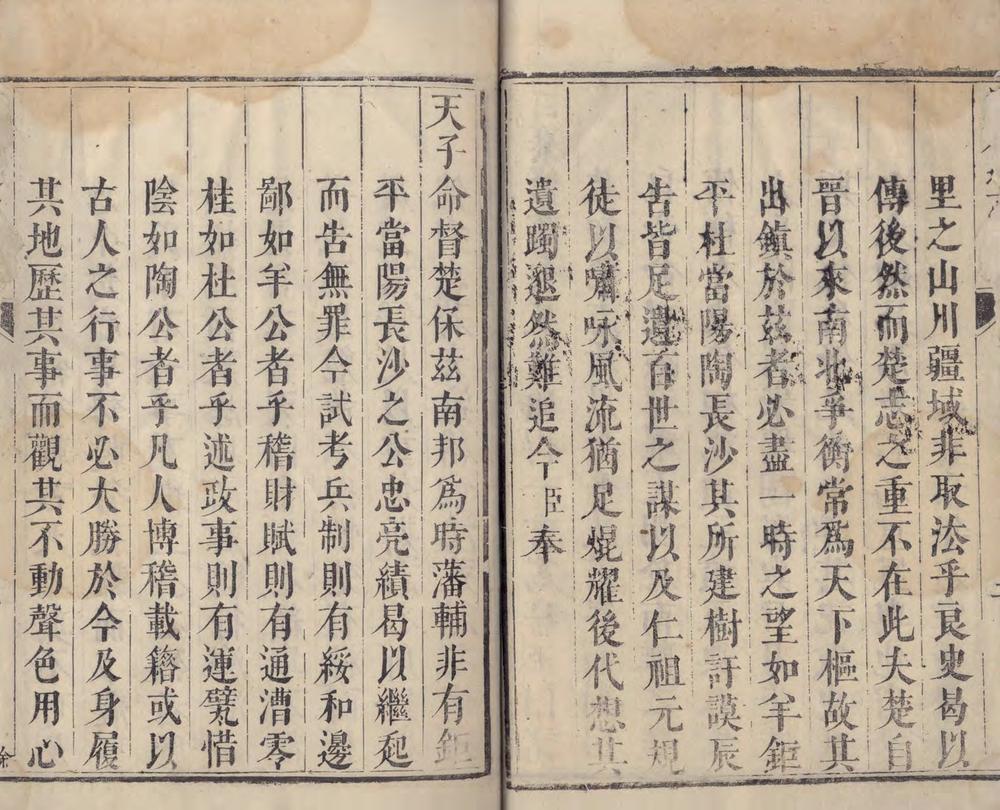 里之山川疆域非取法乎良史曷以
傳後然而楚志之重不在此夫楚自
晉以來南北爭衡常爲天下樞故其
出鎮於茲者必盡一時之望如羊鉅
平杜當陽陶長沙其所建樹訏謨辰
告皆足遺百世之謀以及仁祖元規
徒以嘯咏風流猶足焜耀後代想其
遺躅邈然難追今臣奉
天子命督楚保茲南邦爲時藩輔非有鉅
平當陽長沙之公忠亮績曷以繼起
而告無罪今試考兵制則有綏和邊
鄙如羊公者乎稽財賦則有通漕零
桂如杜公者乎述政事則有運甓惜
陰如陶公者乎凡人博稽載籍或以
古人之行事不必大勝於今及身履
其地歷其事而觀其不動聲色用心